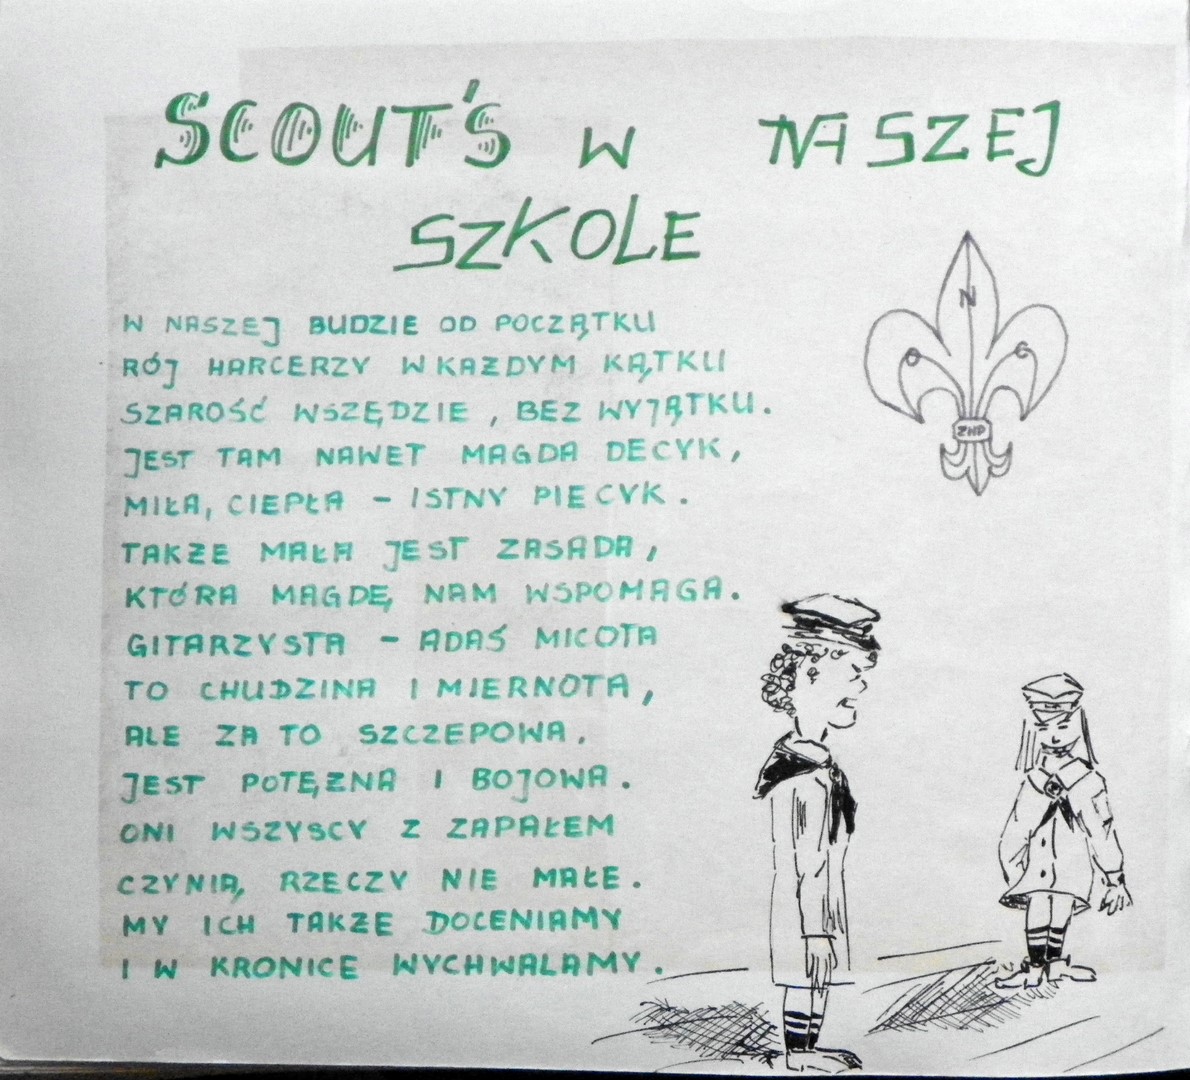 SCOUT'S W NASZEJ
SZKOLE
W NASZEJ BUDZIE OD POCZĄTKU
RÓJ HARCERZY W KAŻDYM KĄTKU
SZAROŚĆ WSZĘDZIE, BEZ WYJĄTKU.
JEST TAM NAWET MAGDA DECYK,
MIŁA, CIEPŁA - ISTNY PIECYK.
TAKŻE MAŁA JEST ZASADA,
KTÓRA MAGDĘ NAM WSPOMAGA.
GITARZYSTA - ADAŚ MICOTA
TO CHUDZINA I MIERNOTA,
ALE ZA TO SZCZEPOWA.
JEST POTĘŻNA I BOJOWA.
ONI WSZYSCY Z ZAPAŁEM
CZYNIĄ RZECZY NIE MAŁE.
MY ICH TAKŻE DOCENIAMY
I W KRONICE WYCHWALAMY.
N
O G
ZHP